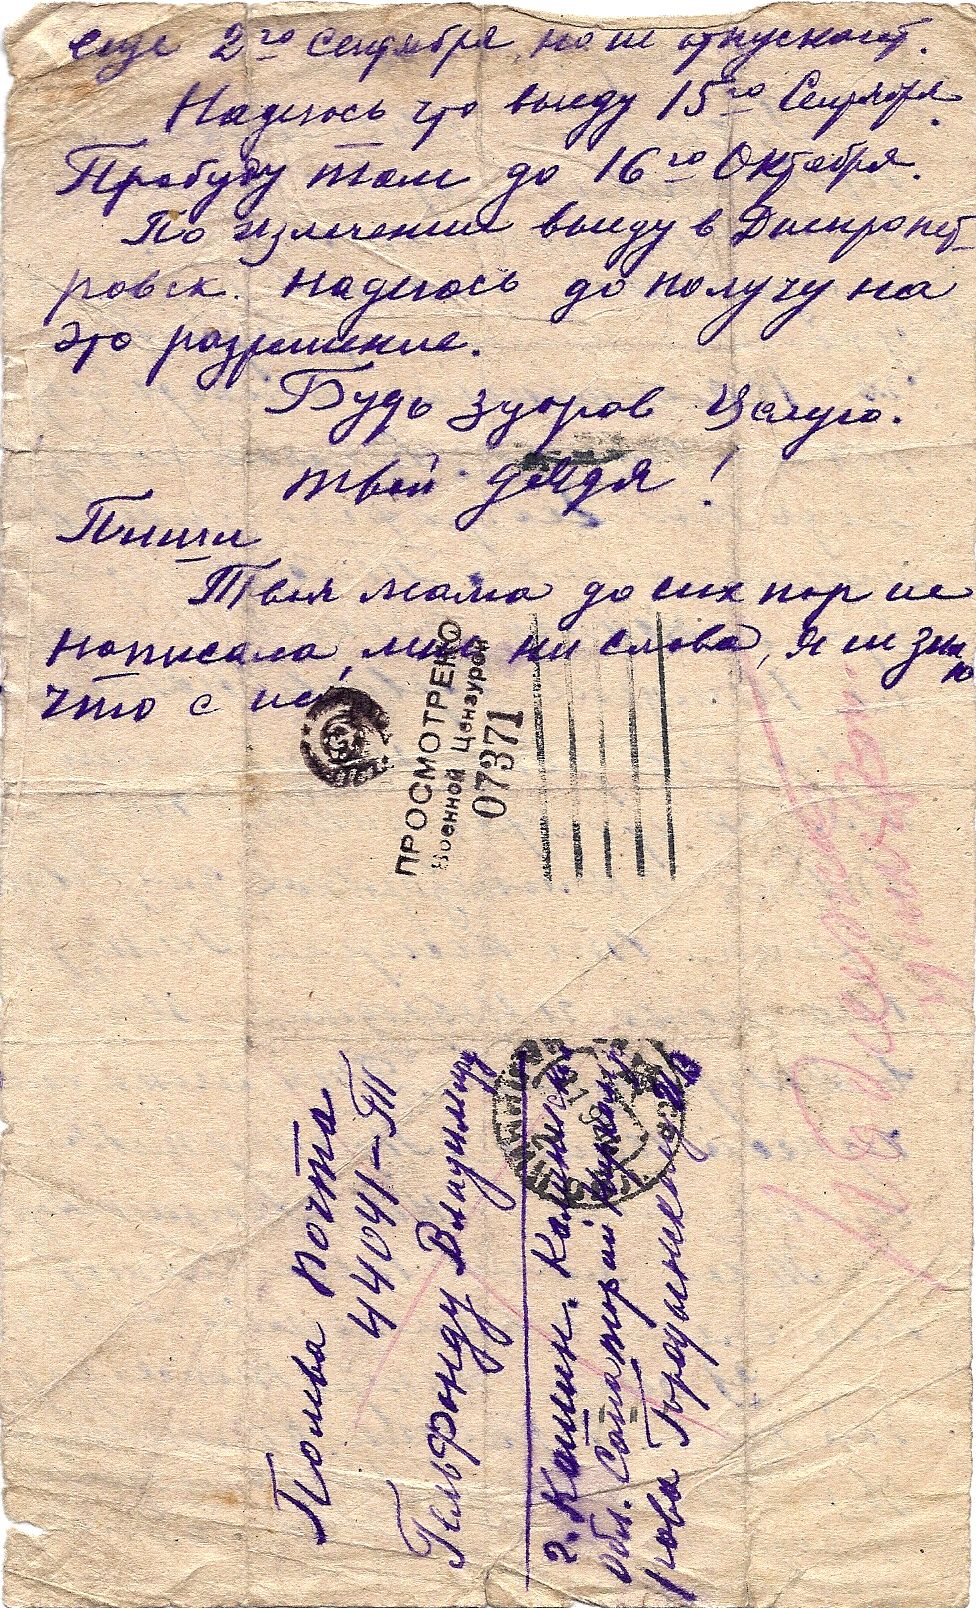 еще 2го Сентября, но не отпускают.
Надеюсь что выеду 15го Сентября.
Пробуду там до 16го Октября.
По излечении выеду в Днепропет-
ровск. Надеюсь до получу на
это разрешение.
Будь здоров Целую.
твой дядя!
Пиши
Твоя мама до сих пор не
написала, мне ни слова, я не знаю
что с ней
ПРОСМОТРЕНО
Военной Цензурой
07371
Полева почта
44041-Т
Гельфонду Владимиру
г. Кашин. Калининской
обл. Санаторий